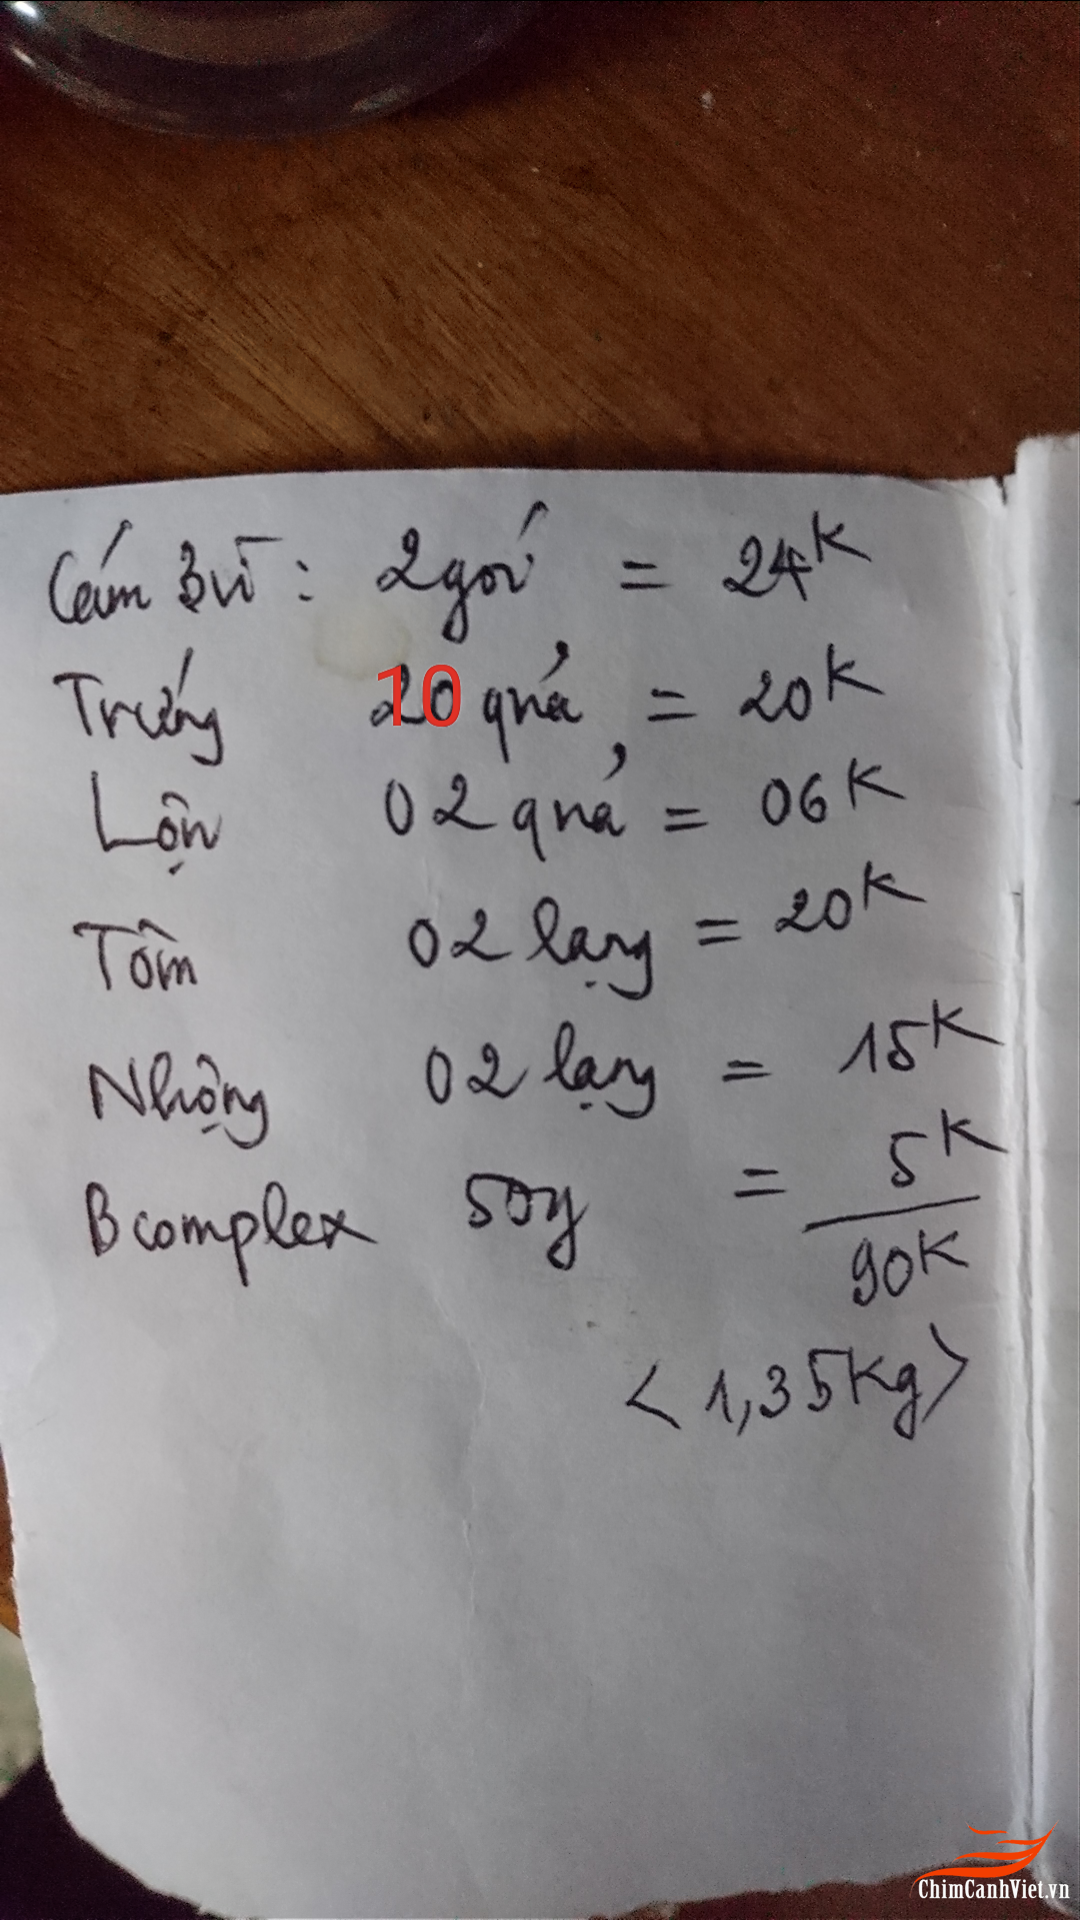 Cám 3 vì: 2 gói = 24K
Trứng 10 quả = 20K
Lộn 02 quả = 06K
Tôm 02 lạng = 20K
Nhộng 02 lạng = 15K
B complex = 5K
90K
<1,35kg>
ChimCanhViet.vn